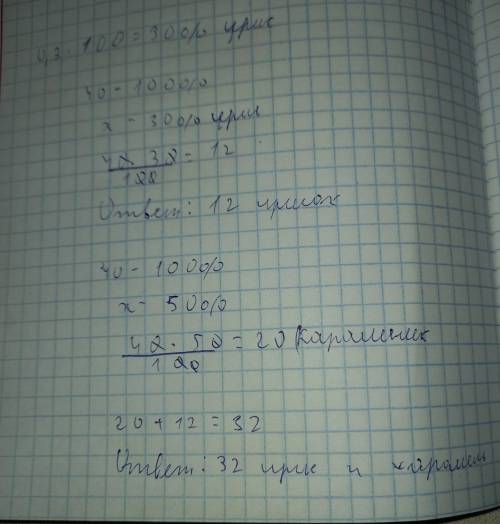 0,3 · 100 = 30% ирис
40 - 100%
x - 30% ирис
40 · 30 = 12
100
Ответ: 12 ирисок
40 - 100%
x - 50%
40 · 50 = 20 карамелек
100
20 + 12 = 32
Ответ: 32 ирис и карамель